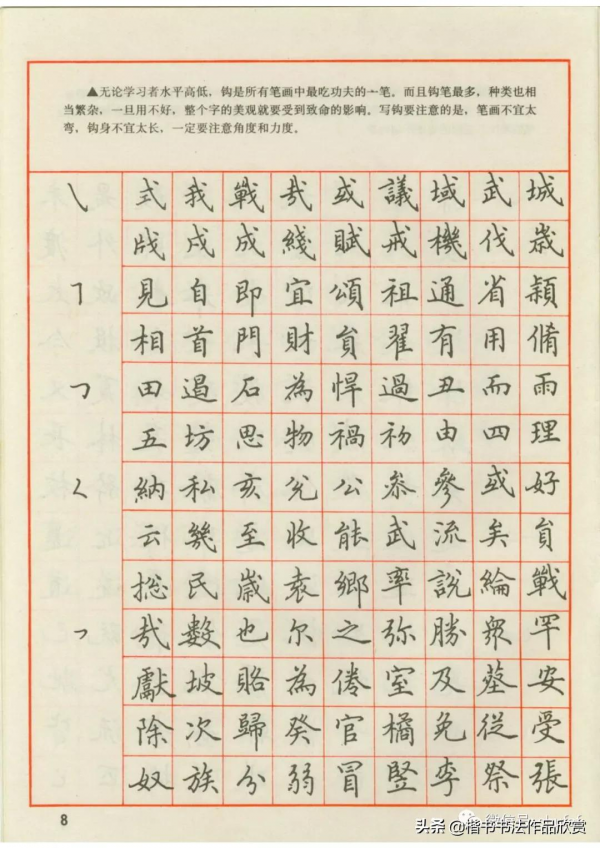 ▲无论学习者水平高低，钩是所有笔画中最吃功夫的一笔。而且钩笔最多，种类也相
当繁杂，一旦用不好，整个字的美观就要受到致命的影响。写钩要注意的是，笔画不宜太
弯，钩身不宜太长，一定要注意角度和力度。
式我戰哉或議域武城
戌成綫賦戒機伐歲
見自即宜頌祖通省穎
相首門財貟翟有用脩
田遏石為悍過丑而雨
五坊思物禍初由四理
納私亥兊公叅參或好
云幾至收能武流矣貟
摠民歲袁鄉率說綸戰
哉數也尔之弥勝眾罕
獻坡賂為倦室及葵安
除次歸癸官橘免從受
奴族分弱冒豎李祭張
8
头条@楷书书法作品欣赏